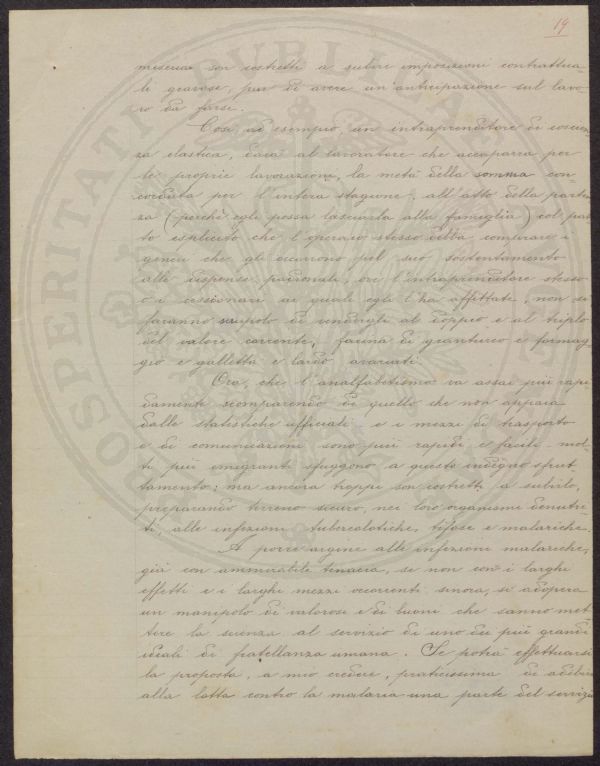 19
miseria son costretti a subire imposizioni contrattua-
li gravose, pur di avere un'anticipazione sul lavo-
ro da farsi.
Così, ad esempio, un intraprenditore di coscien-
za elastica, darà al lavoratore che accaparra per
le proprie lavorazioni, la metà della somma con
cordata per l'intera stagione, all'atto della parten
za (perchè egli possa lasciarla alla famiglia) col pat
to esplicito che l'operaio stesso debba comperare i
generi che gli occorrono pel suo sostentamento
alle dispense padronali, ove l'intraprenditore stesso
o i cessionari ai quali egli l'ha affittate, non si
faranno scrupolo di vendergli al doppio e al triplo
del valore corrente, farina di granturco e formag
gio e galletta e lardo avariati.
Ora, che l'analfabetismo va assai più rapi
damente scomparendo di quello che non appaia
dalle statistiche ufficiali, e i mezzi di trasporto
e di comunicazioni sono più rapidi e facili mol-
ti più emigranti sfuggono a questo indegno sfrut
tamento; ma ancora troppi son costretti a subirlo,
preparando terreno sicuro, nei loro organismi denutri-
ti, alle infezioni tubercolotiche, tifose e malariche.
A porre argine alle infezioni malariche,
già con ammirabile tenacia, se non con i larghi
effetti e i larghi mezzi occorrenti sinora, si adopera
un manipolo di valorosi e di buoni che sanno met
tere la scienza al servizio di uno dei più grandi
ideali di fratellanza umana. Se potrà effettuarsi
la proposta, a mio credere, praticissima di adibire
alla lotta contro la malaria una parte del servizio
PROSPERITATI PUBLICAE